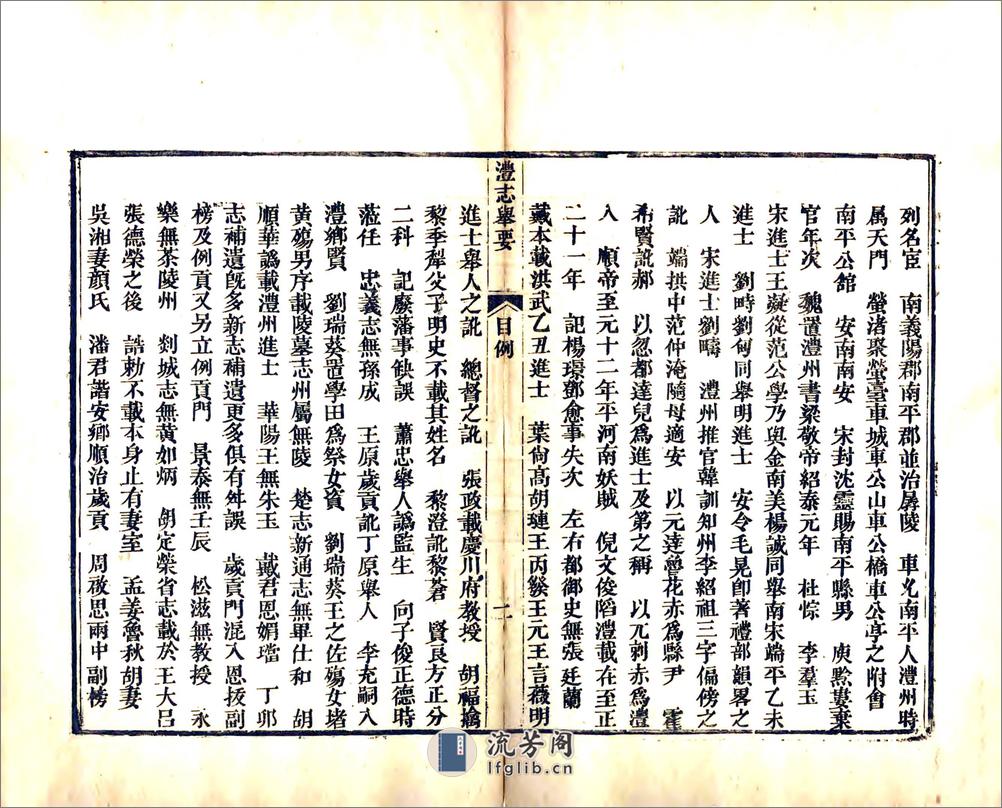 列名宦　南義陽郡南平郡並治孱陵　車允南平人澧州時
屬天門　螢渚聚螢臺車城車公山車公橋車公亭之附會
南平公館　安南南安　宋封沈靈賜南平縣男　庾黔婁棄
官年次　魏置澧州書梁敬帝紹泰元年　杜悰　李羣玉
宋進士王凝從范公學乃與金南美楊誠同舉南宋端平乙未
進士　劉時劉甸同舉明進士　安令毛晃卽著禮部韻畧之
人　宋進士劉疇　澧州推官韓訓知州李紹祖三字偏傍之
訛　端拱中范仲淹隨母適安　以元達魯花赤爲縣尹　霍
希賢訛郝　以忽都達兒爲進士及第之稱　以元刺赤爲澧
入　順帝至元十二年平河南妖賊　倪文俊陷澧載在至正
二十一年　記楊璟鄧愈事失次　左右都御史無張廷蘭
戴本載洪武乙丑進士　葉尙高胡璉王丙燚王元王言薇明
澧志舉要
目例
二
進士舉人之訛　總督之訛　張政載慶川府教授　胡福擒
黎季犛父子明史不載其姓名　黎澄訛黎蒼　賢良方正分
二科　記廢藩事缺誤　蕭忠舉人譌監生　向子俊正德時
蒞任　忠義志無孫成　王原歲貢訛丁原舉人　李充嗣入
澧鄉賢　劉瑞葵置學田爲祭女資　劉瑞葵王之佐殤女堵
黃殤男序載陵墓志州屬無陵　楚志新通志無畢仕和　胡
順華譌載澧州進士　華陽王無朱玉　戴君恩媚璫　丁卯
志補遺旣多新志補遺更多俱有舛誤　歲貢門混入恩拔副
榜及例貢又另立例貢門　景泰無壬辰　松滋無教授　永
樂無茶陵州　剡城志無黃如炳　胡定榮省志載於王大呂
張德榮之後　誥勅不載本身止有妻室　孟姜魯秋胡妻
吳湘妻顏氏　潘君諧安鄉順治歲貢　周啟思兩中副榜
流芳阁
lfglib.cn